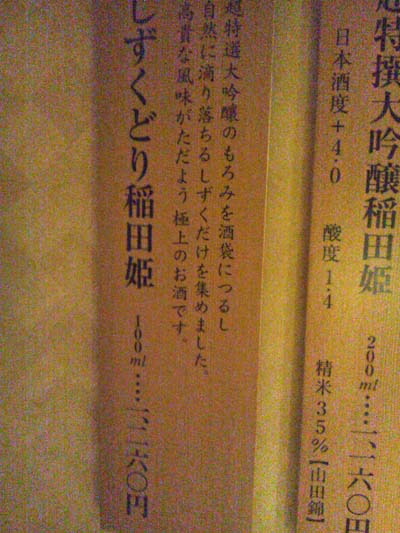 超特撰大吟醸稲田姫 200ml……一、一六〇円
日本酒度+4.0 酸度1.4 精米35%【山田錦】
超特選大吟醸のもろみを酒袋につるし
自然に滴り落ちるしずくだけを集めました。
高貴な風味がただよう 極上のお酒です。
しずくどり稲田姫 100ml……一、二六〇円